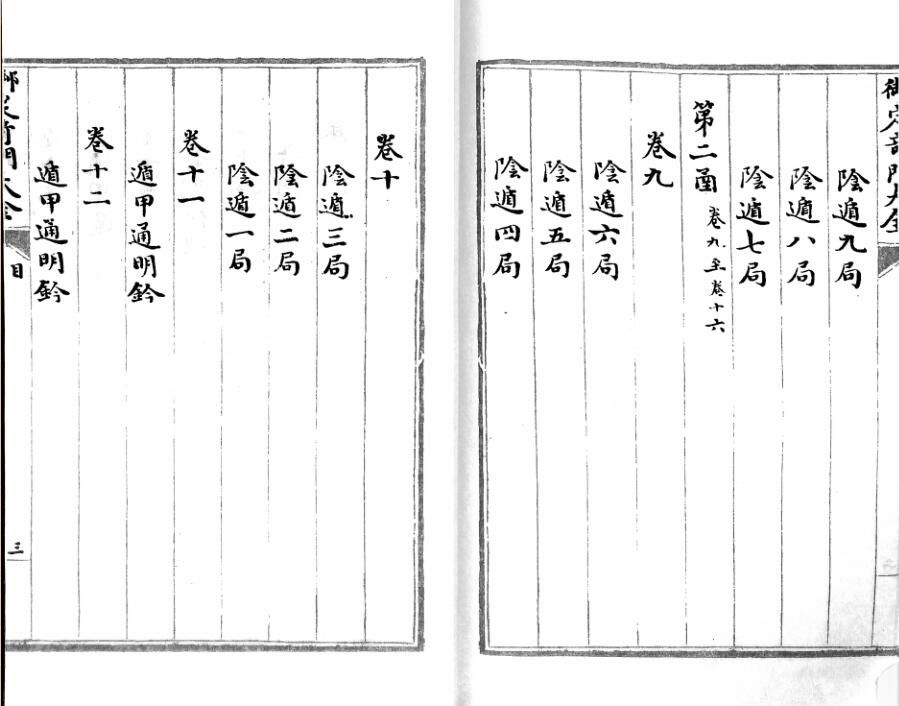 御定奇門大全
陰遁九局
陰遁八局
陰遁七局
第二函 卷九至卷十六
卷九
陰遁六局
陰遁五局
陰遁四局
卷十
陰遁三局
陰遁二局
陰遁一局
卷十一
遁甲通明鈐
卷十二
遁甲通明鈐
御定奇門大全
目
三